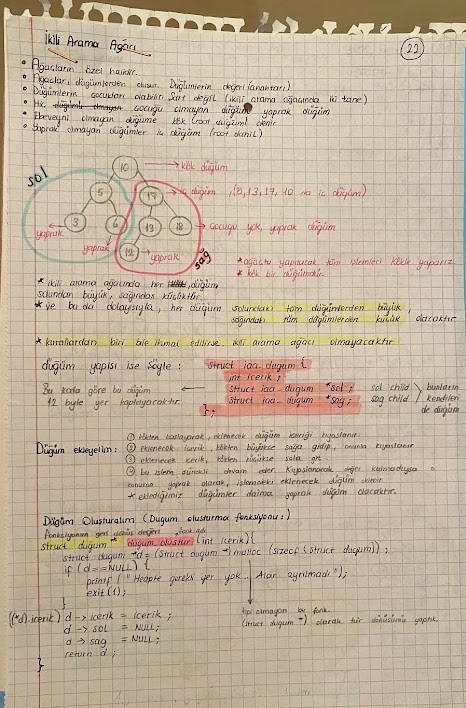 22
İkili Arama Ağacı
• Ağaçların özel halidir.
• Ağaçları düğümlerden oluşur. Düğümlerin değeri (anahtarı)
• Düğümlerin çocukları olabilir şart değil (ikili arama ağacında iki tane)
• Hiç çocuğu olmayan düğüme yaprak düğüm
• Ebeveyni olmayan düğüme kök (root düğümü) denir
• Yaprak olmayan düğümler iç düğüm (root dahil)
sol
10 → kök düğüm
5 17 → iç düğüm, (5,13,17, 10 na iç düğüm)
3 6 13 18 → çocuğu yok, yaprak düğüm
yaprak
yaprak
12 → yaprak
sağ
* ağaçta yapılacak tüm işlemleri kökle yaparız
* kök bir düğümdür.
* ikili arama ağacında her düğüm
solundan büyük, sağından küçüktür.
* ve bu da dolayısıyla, her düğüm solundaki tüm düğümlerden büyük,
sağındaki tüm düğümlerden küçük olacaktır
* kurallardan biri bile ihmal edilirse ikili arama ağacı olmayacaktır
düğüm yapısı ise şöyle : struct iaa_dugum {
int icerik ;
Bu koda göre bu düğüm ← struct iaa_dugum *sol ; sol child bunların
12 byte yer kaplayacaktır. struct iaa_dugum *sag ; sağ child kendileri
}; de düğüm
Düğüm ekleyelim :
① kökten başlayarak, eklenecek düğüm içeriği kıyaslanır.
② eklenecek içerik, kökten büyükse sağa gidip, onunla kıyaslanır
③ eklenecek içerik, kökten küçükse sola git.
④ bu işlem sürekli devam eder. Kıyaslanacak değer kalmadıysa o
konuma yaprak olarak, işlemdeki eklenecek düğüm eklenir
* eklediğimiz düğümler daima yaprak düğüm olacaktır.
Düğüm Oluşturalım (Dugum olusturma fonksiyonu:)
fonksiyonun geri dönüş değeri
struct dugum * dugum_olustur (int icerik){
struct dugum *d = (struct dugum *) malloc (sizeof (struct dugum)) ;
if (d == NULL) {
printf ("Heapte gerekli yer yok... Alan ayrılmadı");
exit (1);
}
((*d).icerik) d → icerik = icerik ;
d → sol = NULL;
d → sag = NULL;
return d ;
}
tipi olmayan bu fonk.
(struct dugum *) olarak tür dönüşümü yaptık.